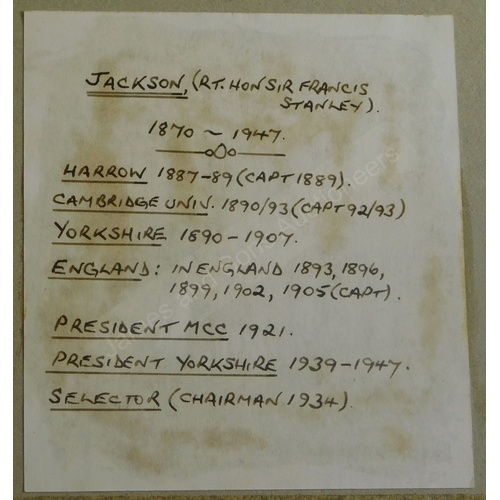 JACKSON, (RT. HON SIR FRANCIS
STANLEY).
1870 ~ 1947.
HARROW 1887-89 (CAPT 1889).
CAMBRIDGE UNIV. 1890/93 (CAPT 92/93)
YORKSHIRE 1890-1907.
ENGLAND: IN ENGLAND 1893, 1896,
1899, 1902, 1905 (CAPT).
PRESIDENT MCC 1921.
PRESIDENT YORKSHIRE 1939-1947.
SELECTOR (CHAIRMAN 1934).